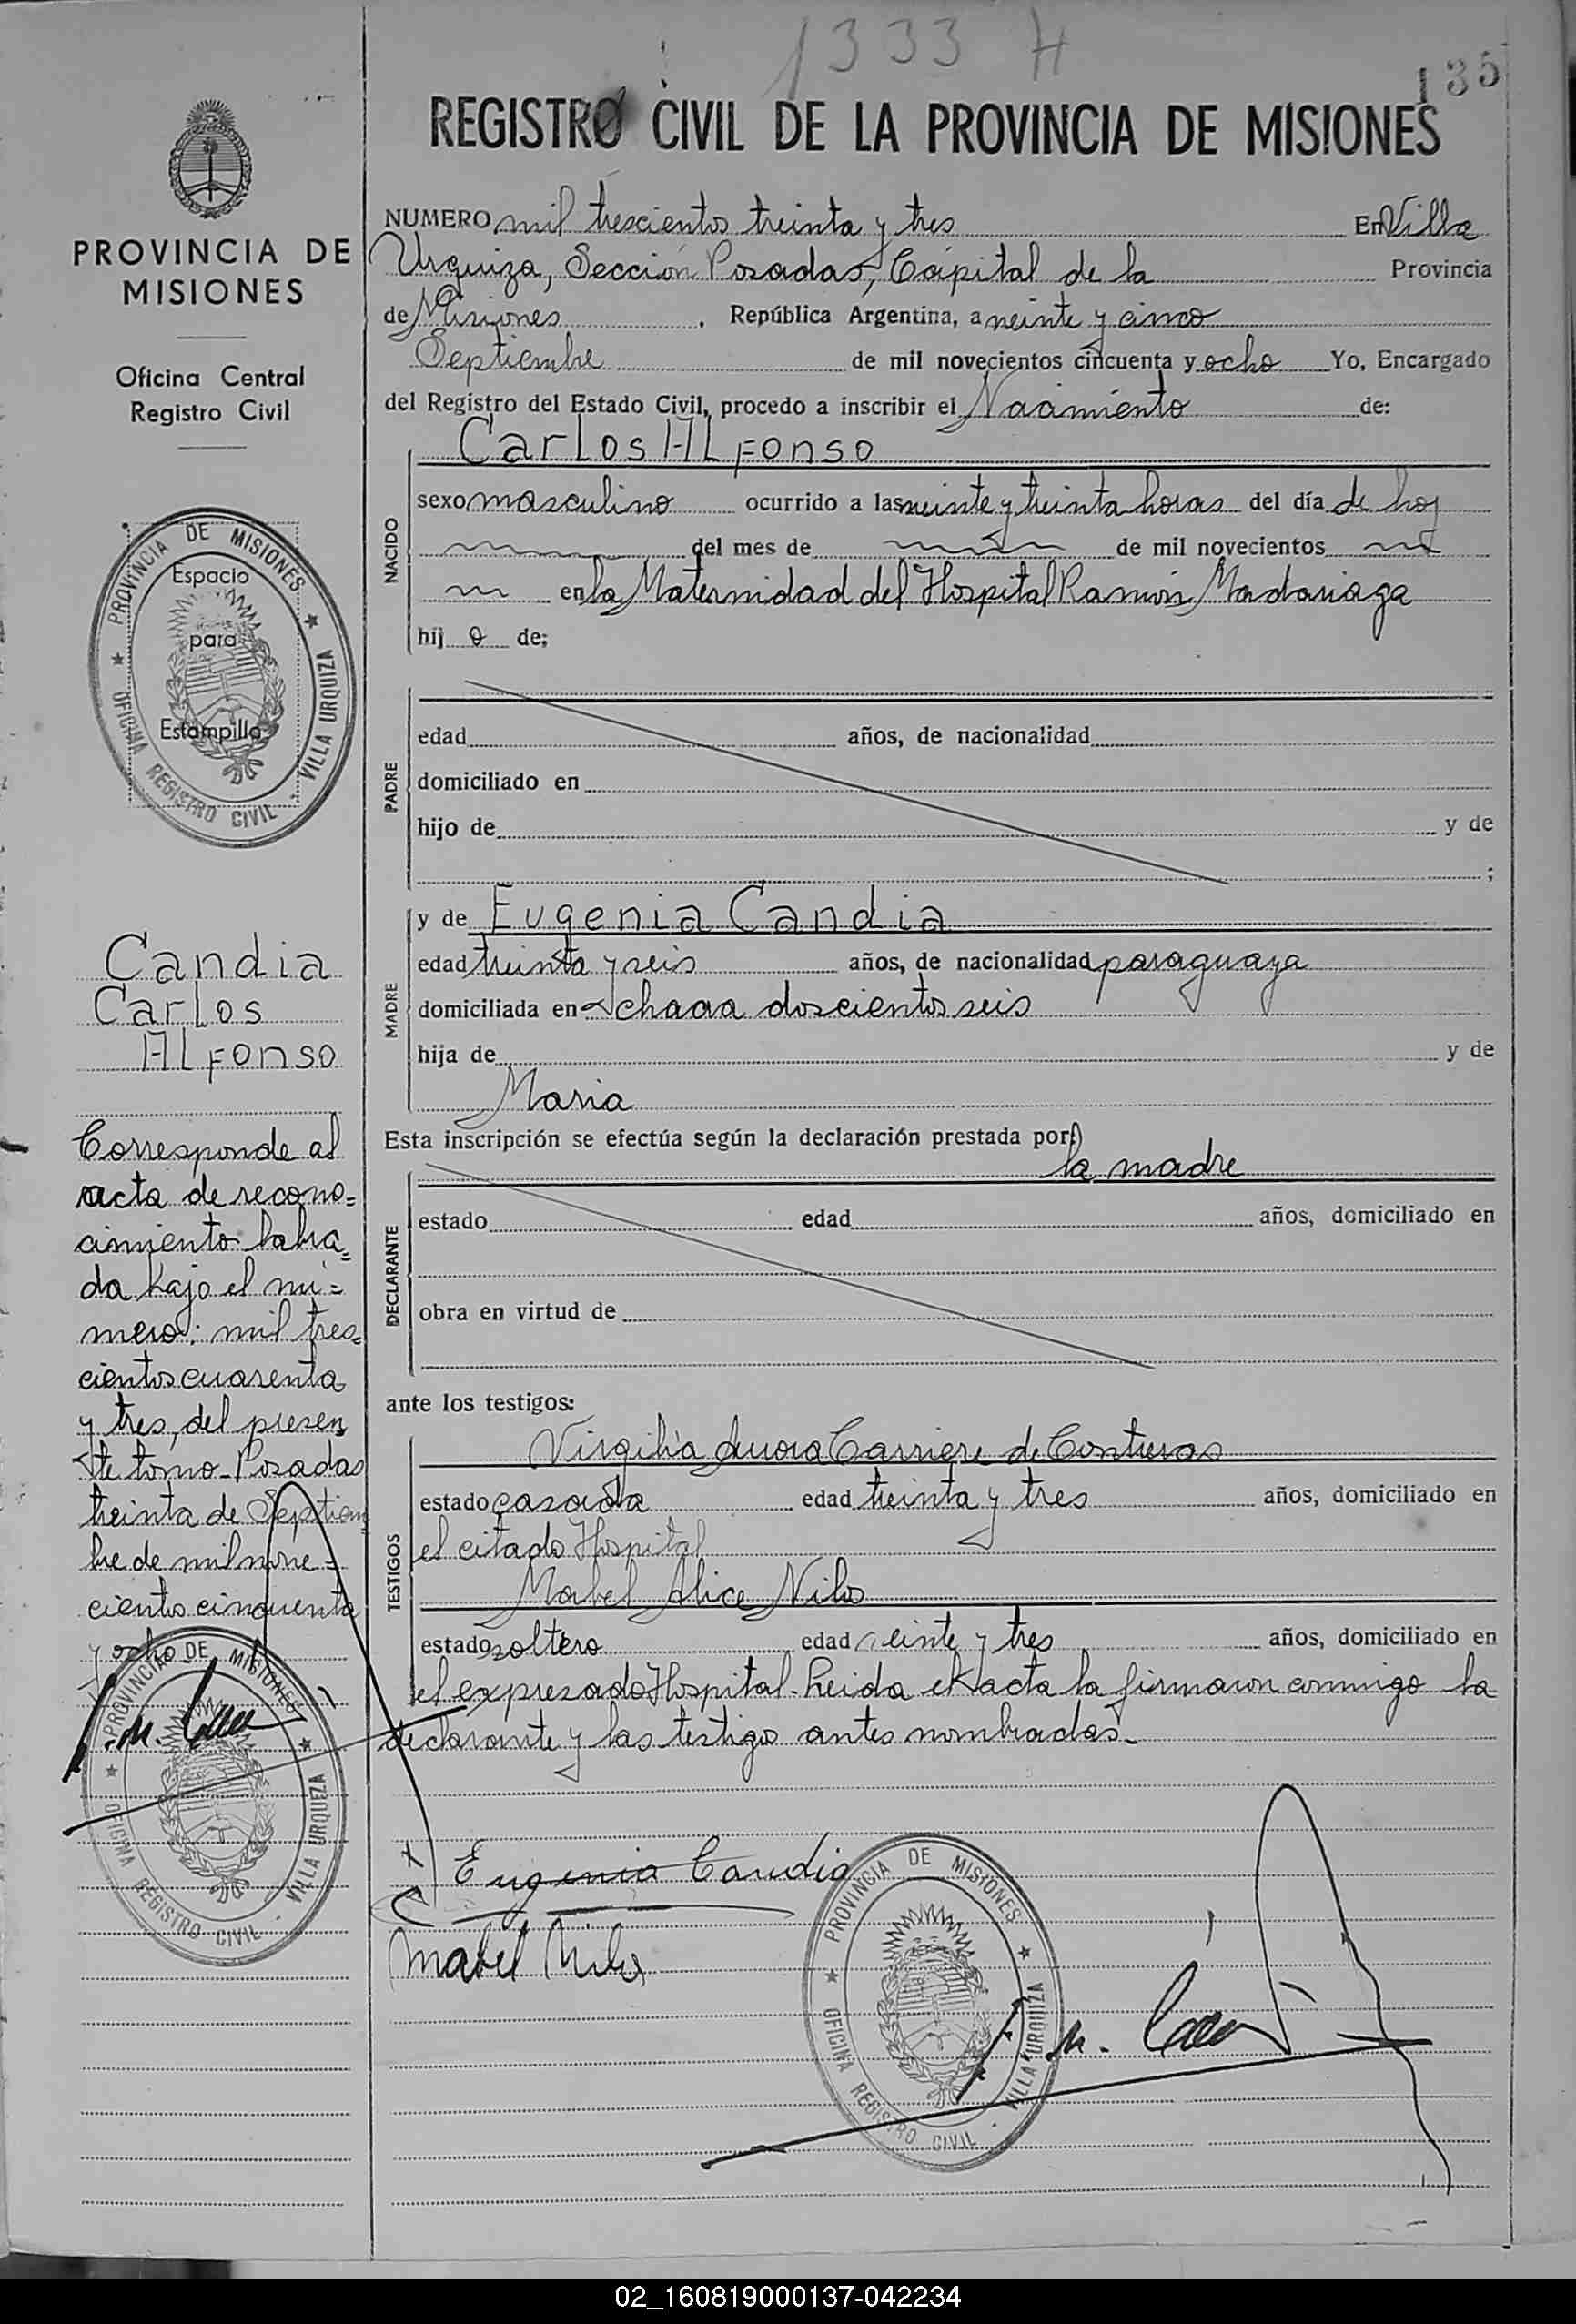 1333 H
135
REGISTRO CIVIL DE LA PROVINCIA DE MISIONES
PROVINCIA DE
MISIONES
Oficina Central
Registro Civil
PROVINCIA DE MISIONES
OFICINA REGISTRO CIVIL - VILLA URQUIZA
Espacio
para
Estampilla
Candia
Carlos
Alfonso
Corresponde al
acta de recono=
cimiento labra=
da bajo el nú=
mero: mil tres=
cientos cuarenta
y tres, del presen
te tomo - Posadas
treinta de Septiem
bre de mil nove=
cientos cincuenta
y ocho
PROVINCIA DE MISIONES
OFICINA REGISTRO CIVIL - VILLA URQUIZA
NUMERO mil trescientos treinta y tres En Villa
Urquiza, Sección Posadas, Cápital de la Provincia
de Misiones, República Argentina, a veinte y cinco
Septiembre de mil novecientos cincuenta y ocho Yo, Encargado
del Registro del Estado Civil, procedo a inscribir el Nacimiento de:
NACIDO
Carlos Alfonso
sexo masculino ocurrido a las veinte y treinta horas del día de hoy
del mes de de mil novecientos
en la Maternidad del Hospital Ramón Madariaga
hij o de;
PADRE
edad años, de nacionalidad
domiciliado en
hijo de y de
;
MADRE
y de Eugenia Candia
edad treinta y seis años, de nacionalidad paraguaya
domiciliada en chacra doscientos seis
hija de y de
Maria
Esta inscripción se efectúa según la declaración prestada por:
la madre
DECLARANTE
estado edad años, domiciliado en
obra en virtud de
ante los testigos:
TESTIGOS
Virgilia Aurora Carriere de Contreras
estado casada edad treinta y tres años, domiciliado en
el citado Hospital
Mabel Alice Nilo
estado soltero edad veinte y tres años, domiciliado en
el expresado Hospital. Leida el acta la firmaron conmigo la
declarante y las testigo antes nombradas.-
Eugenia Candia
Mabel Nilo
PROVINCIA DE MISIONES
OFICINA REGISTRO CIVIL - VILLA URQUIZA
02_160819000137-042234